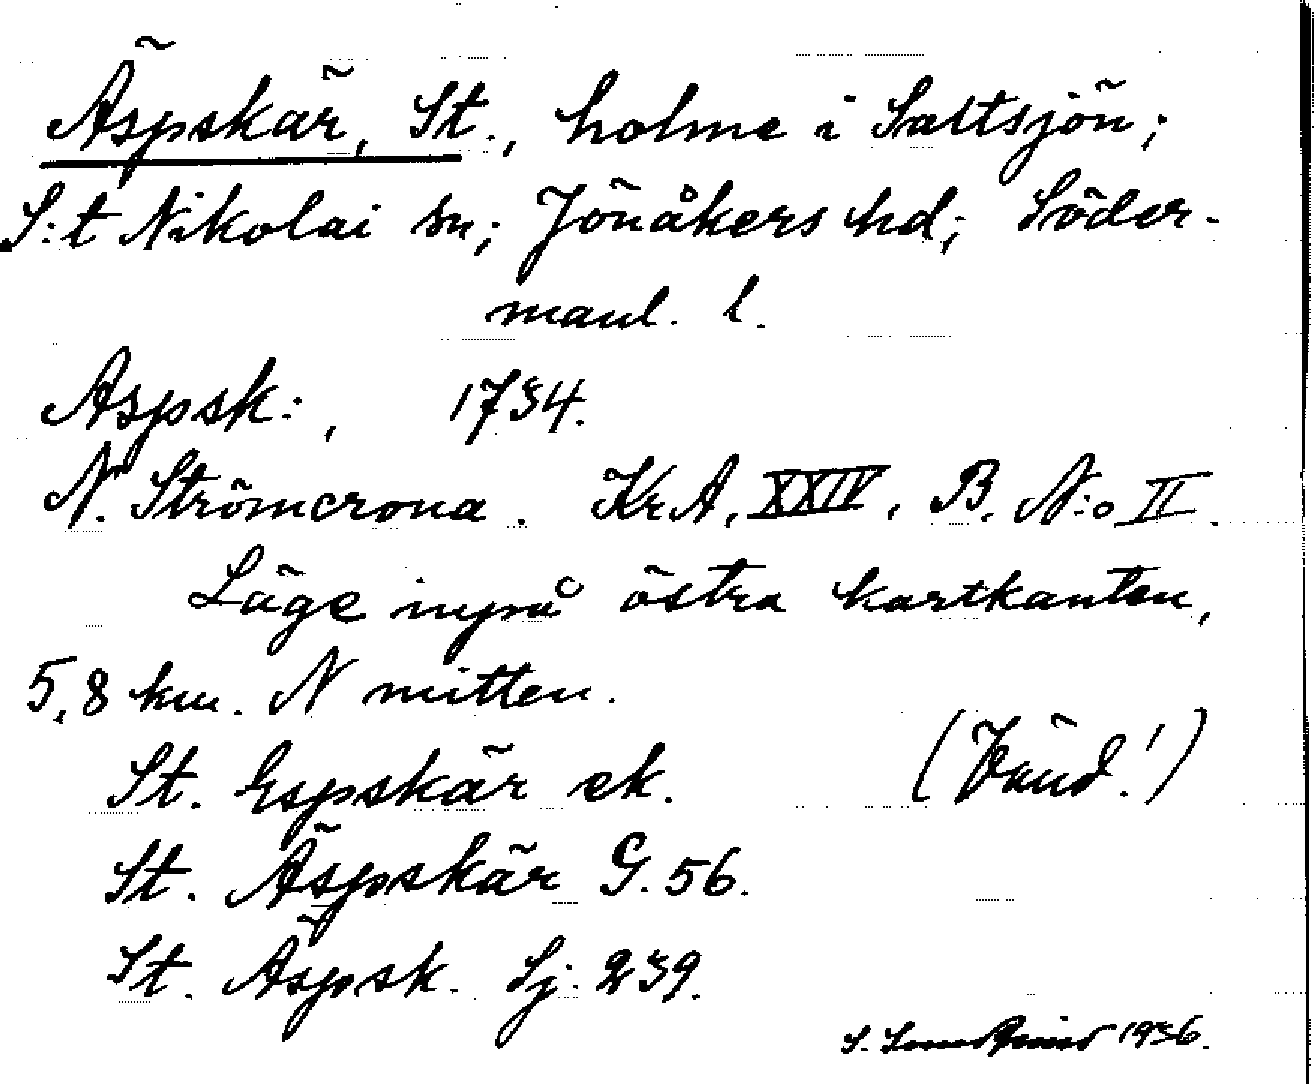 Äspskär, St., holme i Saltsjön;
S:t Nikolai sn; Jönåkers hd; Söder-
manl. l.
Aspsk:, 1734.
N. Strömcrona. KrA, XXIV, B. N:o II.
Läge inpå östra kartkanten,
5,8 km. N mitten.
St. Espskär ek. (Vänd!)
St. Äspskär G. 56.
St. Äspsk. Sj. 239.
S. 1936.